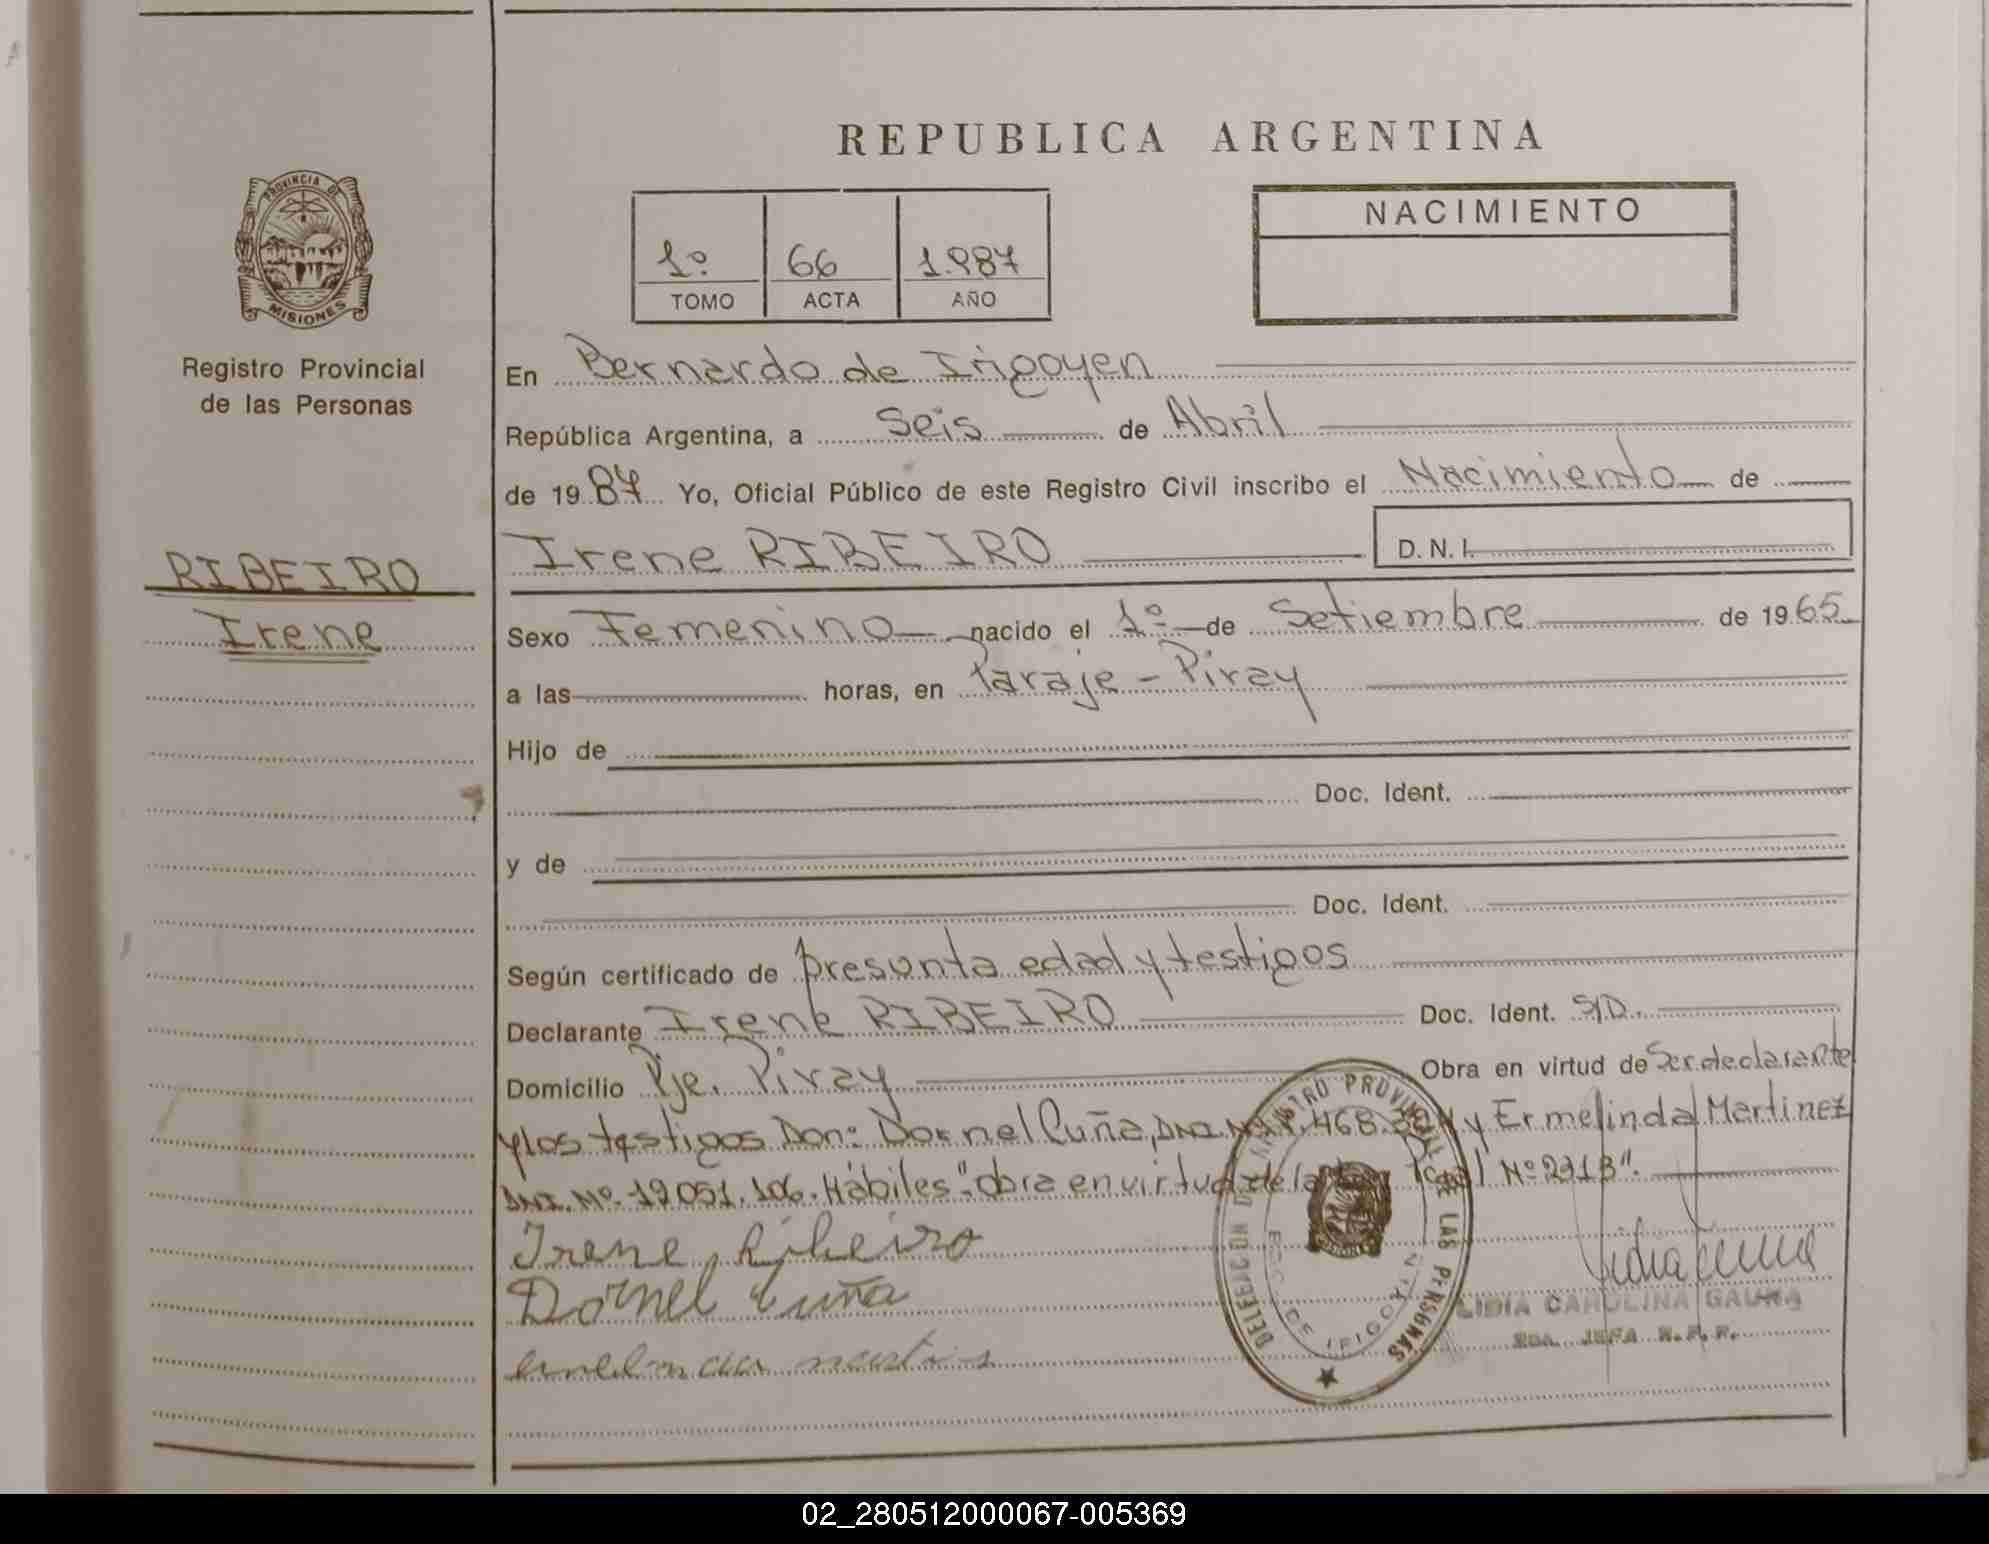 REPUBLICA ARGENTINA
PROVINCIA DE
MISIONES
Registro Provincial
de las Personas
NACIMIENTO
1º 66 1.987
TOMO ACTA AÑO
En Bernardo de Irigoyen
República Argentina, a Seis de Abril
de 19 87 Yo, Oficial Público de este Registro Civil inscribo el Nacimiento de
Irene RIBEIRO D.N.I.
RIBEIRO
Irene
Sexo Femenino nacido el 1º de Setiembre de 1965
a las horas, en Paraje - Piray
Hijo de
Doc. Ident.
y de
Doc. Ident.
Según certificado de presunta edad y testigos
Declarante Irene RIBEIRO Doc. Ident. S/D.
Domicilio Pje. Piray Obra en virtud de Ser declarante
y los testigos Don: Dornel Cuña, DNI. Nº 468. y Ermelinda Martinez
DNI. Nº 12.051.106. Hábiles "obra en virtud de la Nº 2318".
Irene Ribeiro
Dornel Cuña
DELEGACION DEL REGISTRO PROVINCIAL DE LAS PERSONAS
BDO. DE IRIGOYEN
LIDIA CAROLINA GAUNA
JEFA R.P.P.
02_280512000067-005369